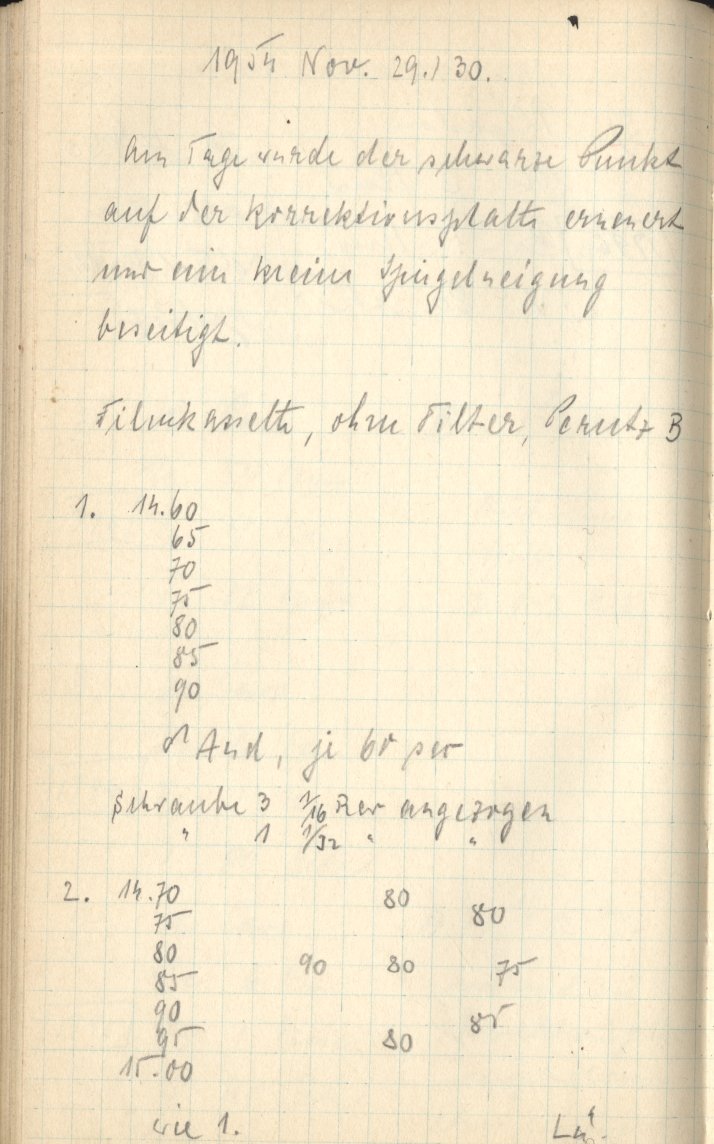 1954 Nov. 29./30.
Am Tage wurde der schwarze Punkt
auf der Korrektionsplatte erneuert
und eine kleine Spiegelneigung
beseitigt.
Filmkassette, ohne Filter, Perutz B
1. 14.60
65
70
75
80
85
90
And, je 60 sec
Schraube 3 1/16 Rev angezogen
" 1 1/32 " "
2. 14.70 80 80
75
80 90 80 75
85
90 85
95 80
15.00
wie 1.